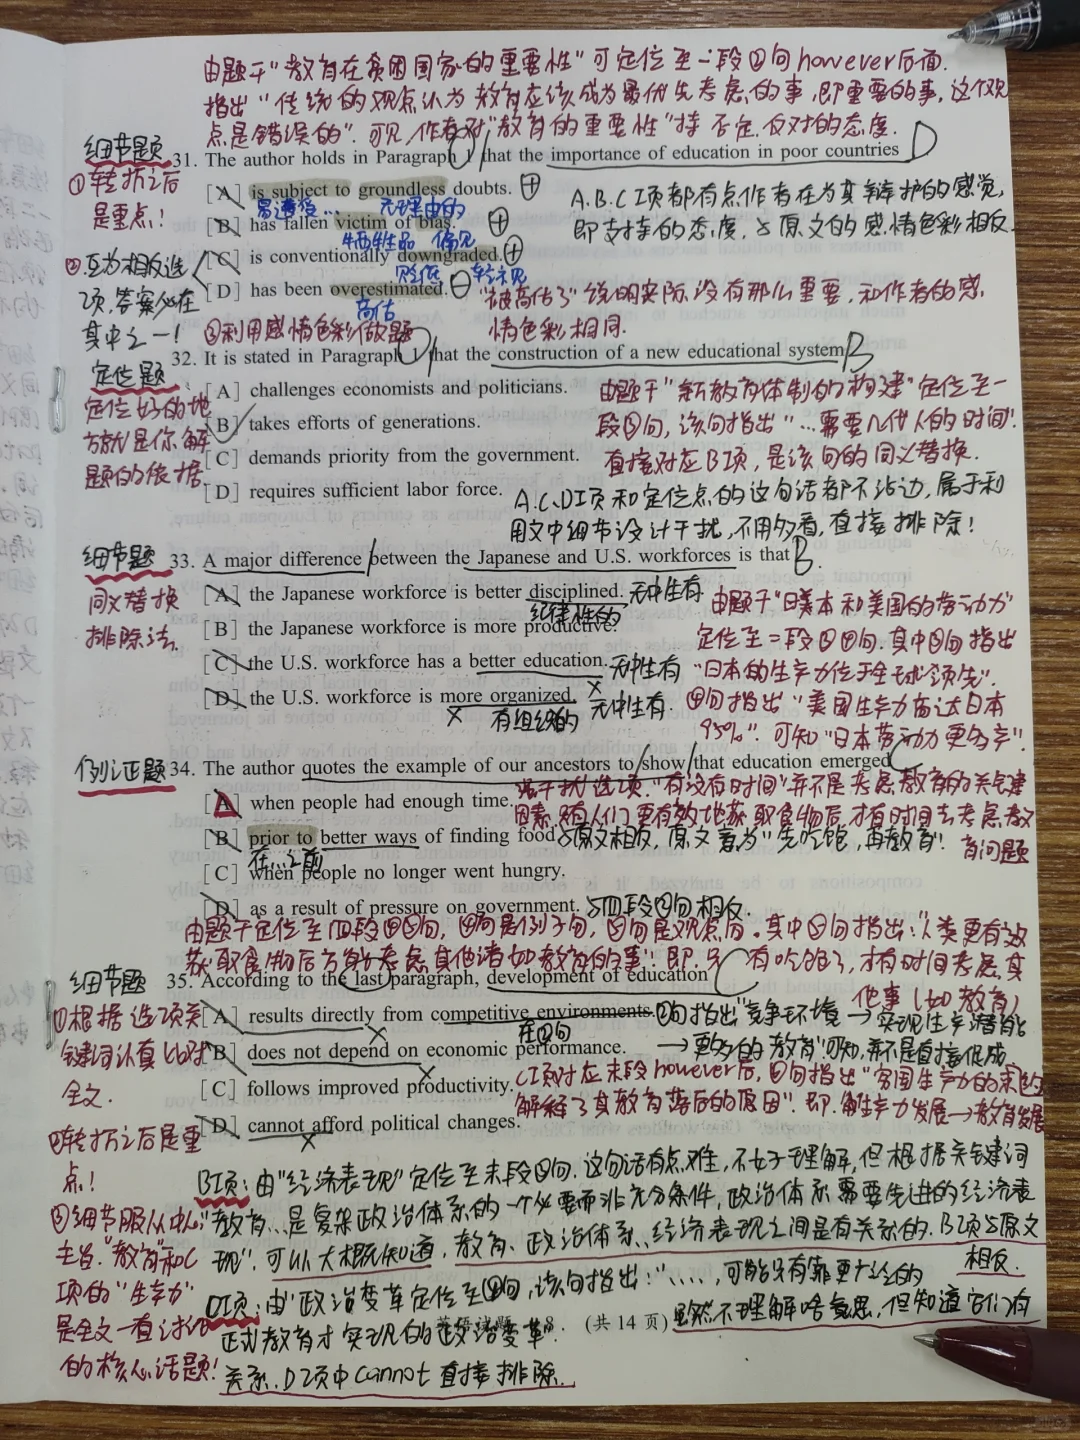 由题干"教育在贫困国家的重要性"可定位至一段②句however后面.
指出"传统的观点认为教育应该成为最优先考虑的事,即重要的事,这个观
点是错误的". 可见,作者对"教育的重要性"持否定,反对的态度.
细节题
31. The author holds in Paragraph 1 that the importance of education in poor countries D
①转折之后
是重点!
[A] is subject to groundless doubts. ⊕
易遭受… 无理由的
[B] has fallen victim of bias. ⊕
牺牲品 偏见
[C] is conventionally downgraded. ⊕
贬低 轻视
[D] has been overestimated. ⊖
高估
A.B.C项都有点作者在为其辩护的感觉,
即支持的态度,与原文的感情色彩相反.
②.互为相反选
项,答案必在
其中之一!
③利用感情色彩做题
"被高估了"说明实际没有那么重要,和作者的感
情色彩相同.
32. It is stated in Paragraph 1 that the construction of a new educational system B
定位题
定位好的地
方就是你解
题的依据
[A] challenges economists and politicians.
[B] takes efforts of generations.
[C] demands priority from the government.
[D] requires sufficient labor force.
由题干"新教育体制的构建"定位至一
段③句,该句指出"…需要几代人的时间".
直接对应B项,是该句的同义替换.
A.C.D项和定位点的这句话都不沾边,属于利
用文中细节设计干扰,不用多看,直接排除!
细节题
33. A major difference between the Japanese and U.S. workforces is that B.
同义替换
排除法.
[A] the Japanese workforce is better disciplined. 无中生有
纪律性的
[B] the Japanese workforce is more productive.
[C] the U.S. workforce has a better education. 无中生有
[D] the U.S. workforce is more organized. 无中生有.
有组织的
由题干"日本和美国的劳动力"
定位至二段③④句.其中③句指出
"日本的生产力位于全球领先".
④句指出"美国生产力高达日本
95%". 可知"日本劳动力更多产".
例证题
34. The author quotes the example of our ancestors to show that education emerged C
[A] when people had enough time.
强干扰选项."有没有时间"并不是考虑教育的关键
因素.只有人们更有效地获取食物后,才有时间去考虑教
育问题
[B] prior to better ways of finding food. 与原文相反,原文意为"先吃饱,再教育".
在…之前
[C] when people no longer went hungry.
[D] as a result of pressure on government. 与四段②句相反.
由题干定位至四段④⑤句,④句是例子句,⑤句是观点句.其中⑤句指出:"人类更有效
获取食物后方能考虑其他诸如教育的事". 即:只有吃饱了,才有时间考虑其
他事(如教育)
细节题
35. According to the last paragraph, development of education C
①根据选项关
键词认真比对
全文.
②转折之后是重
点!
③细节服从中心
主旨."教育"和C
项的"生产力"
是全文一直讨论
的核心话题!
[A] results directly from competitive environments.
在②句
②句指出"竞争环境→实现生产潜能
→更多的教育"可知,并不是直接促成
[B] does not depend on economic performance.
[C] follows improved productivity.
C项对应末段however后,
[D] cannot afford political changes.
B项:由"经济表现"定位至末段③句.这句话有点难,不好理解,但根据关键词
"教育…是复杂政治体系的一个必要而非充分条件,政治体系需要先进的经济表
现".可以大概知道,教育、政治体系、经济表现之间是有关系的.B项与原文
相反.
D项:由"政治变革定位至④句,该句指出:"……,可能只有靠更广泛的
正式教育才实现的政治变革". 虽然不理解啥意思,但知道它们有
关系.D项中cannot直接排除.
(共 14 页)